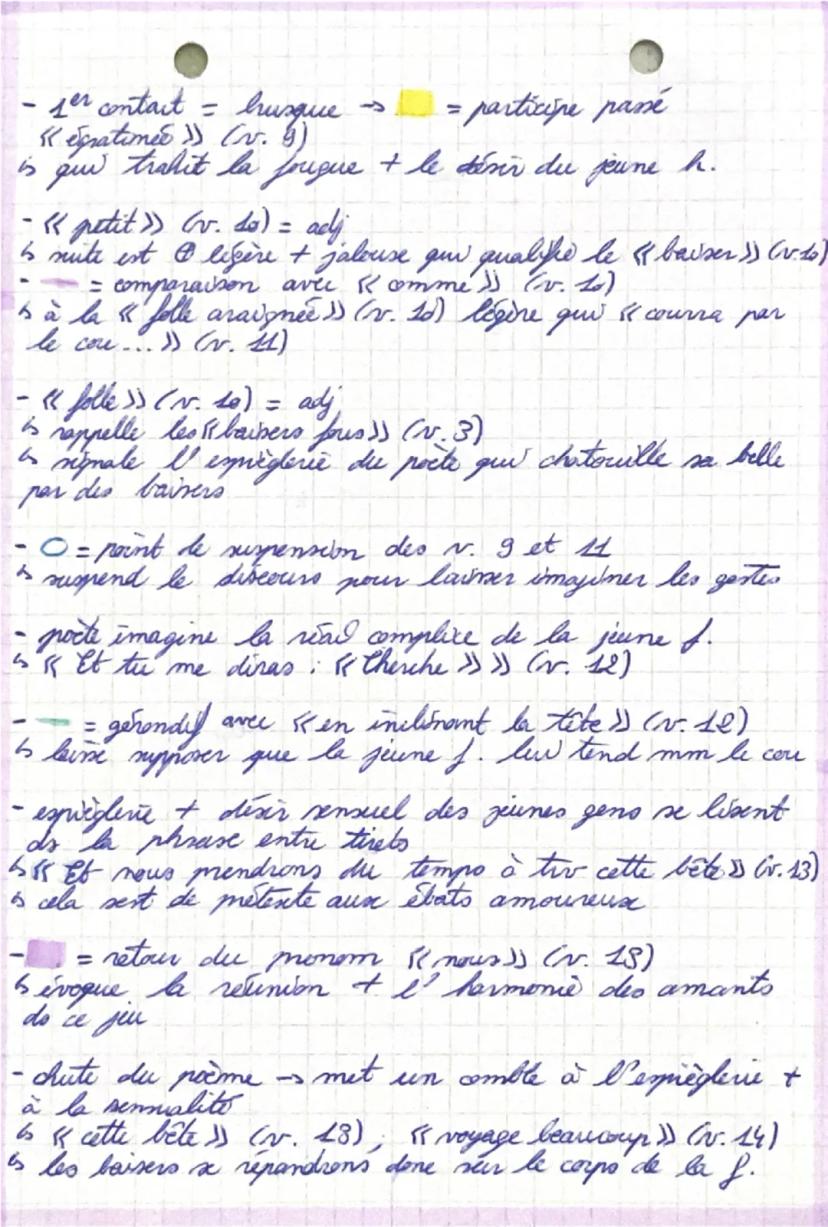 - 1er contact = brusque → = participe passé
« égratignée » (v. 9)
↳ qui trahit la fougue + le désir du jeune h.
- « petit » (v. 10) = adj
↳ suite est ⊕ légère + jalouse qui qualifie le « baiser » (v. 10)
- = comparaison avec « comme » (v. 10)
↳ à la « folle araignée » (v. 10) légère qui « courra par
le cou ... » (v. 11)
- « folle » (v. 10) = adj
↳ rappelle les « baisers fous » (v. 3)
↳ signale l'espièglerie du poète qui chatouille sa belle
par des baisers
- = point de suspension des v. 9 et 11
↳ suspend le discours pour laisser imaginer les gestes
- poète imagine la réac complice de la jeune f.
↳ « Et tu me diras : « Cherche » » (v. 12)
- = gérondif avec « en inclinant la tête » (v. 12)
↳ laisse supposer que la jeune f. lui tend mm le cou
- espièglerie + désir sensuel des jeunes gens se lisent
ds la phrase entre tirets
↳ « Et nous prendrons du temps à trv cette bête » (v. 13)
↳ cela sert de prétexte aux ébats amoureux
- = retour du pronom « nous » (v. 13)
↳ évoque la réunion + l'harmonie des amants
ds ce jeu
- chute du poème → met un comble à l'espièglerie +
à la sensualité
↳ « cette bête » (v. 13), « voyage beaucoup » (v. 14)
↳ les baisers se répandrons donc sur le corps de la f.